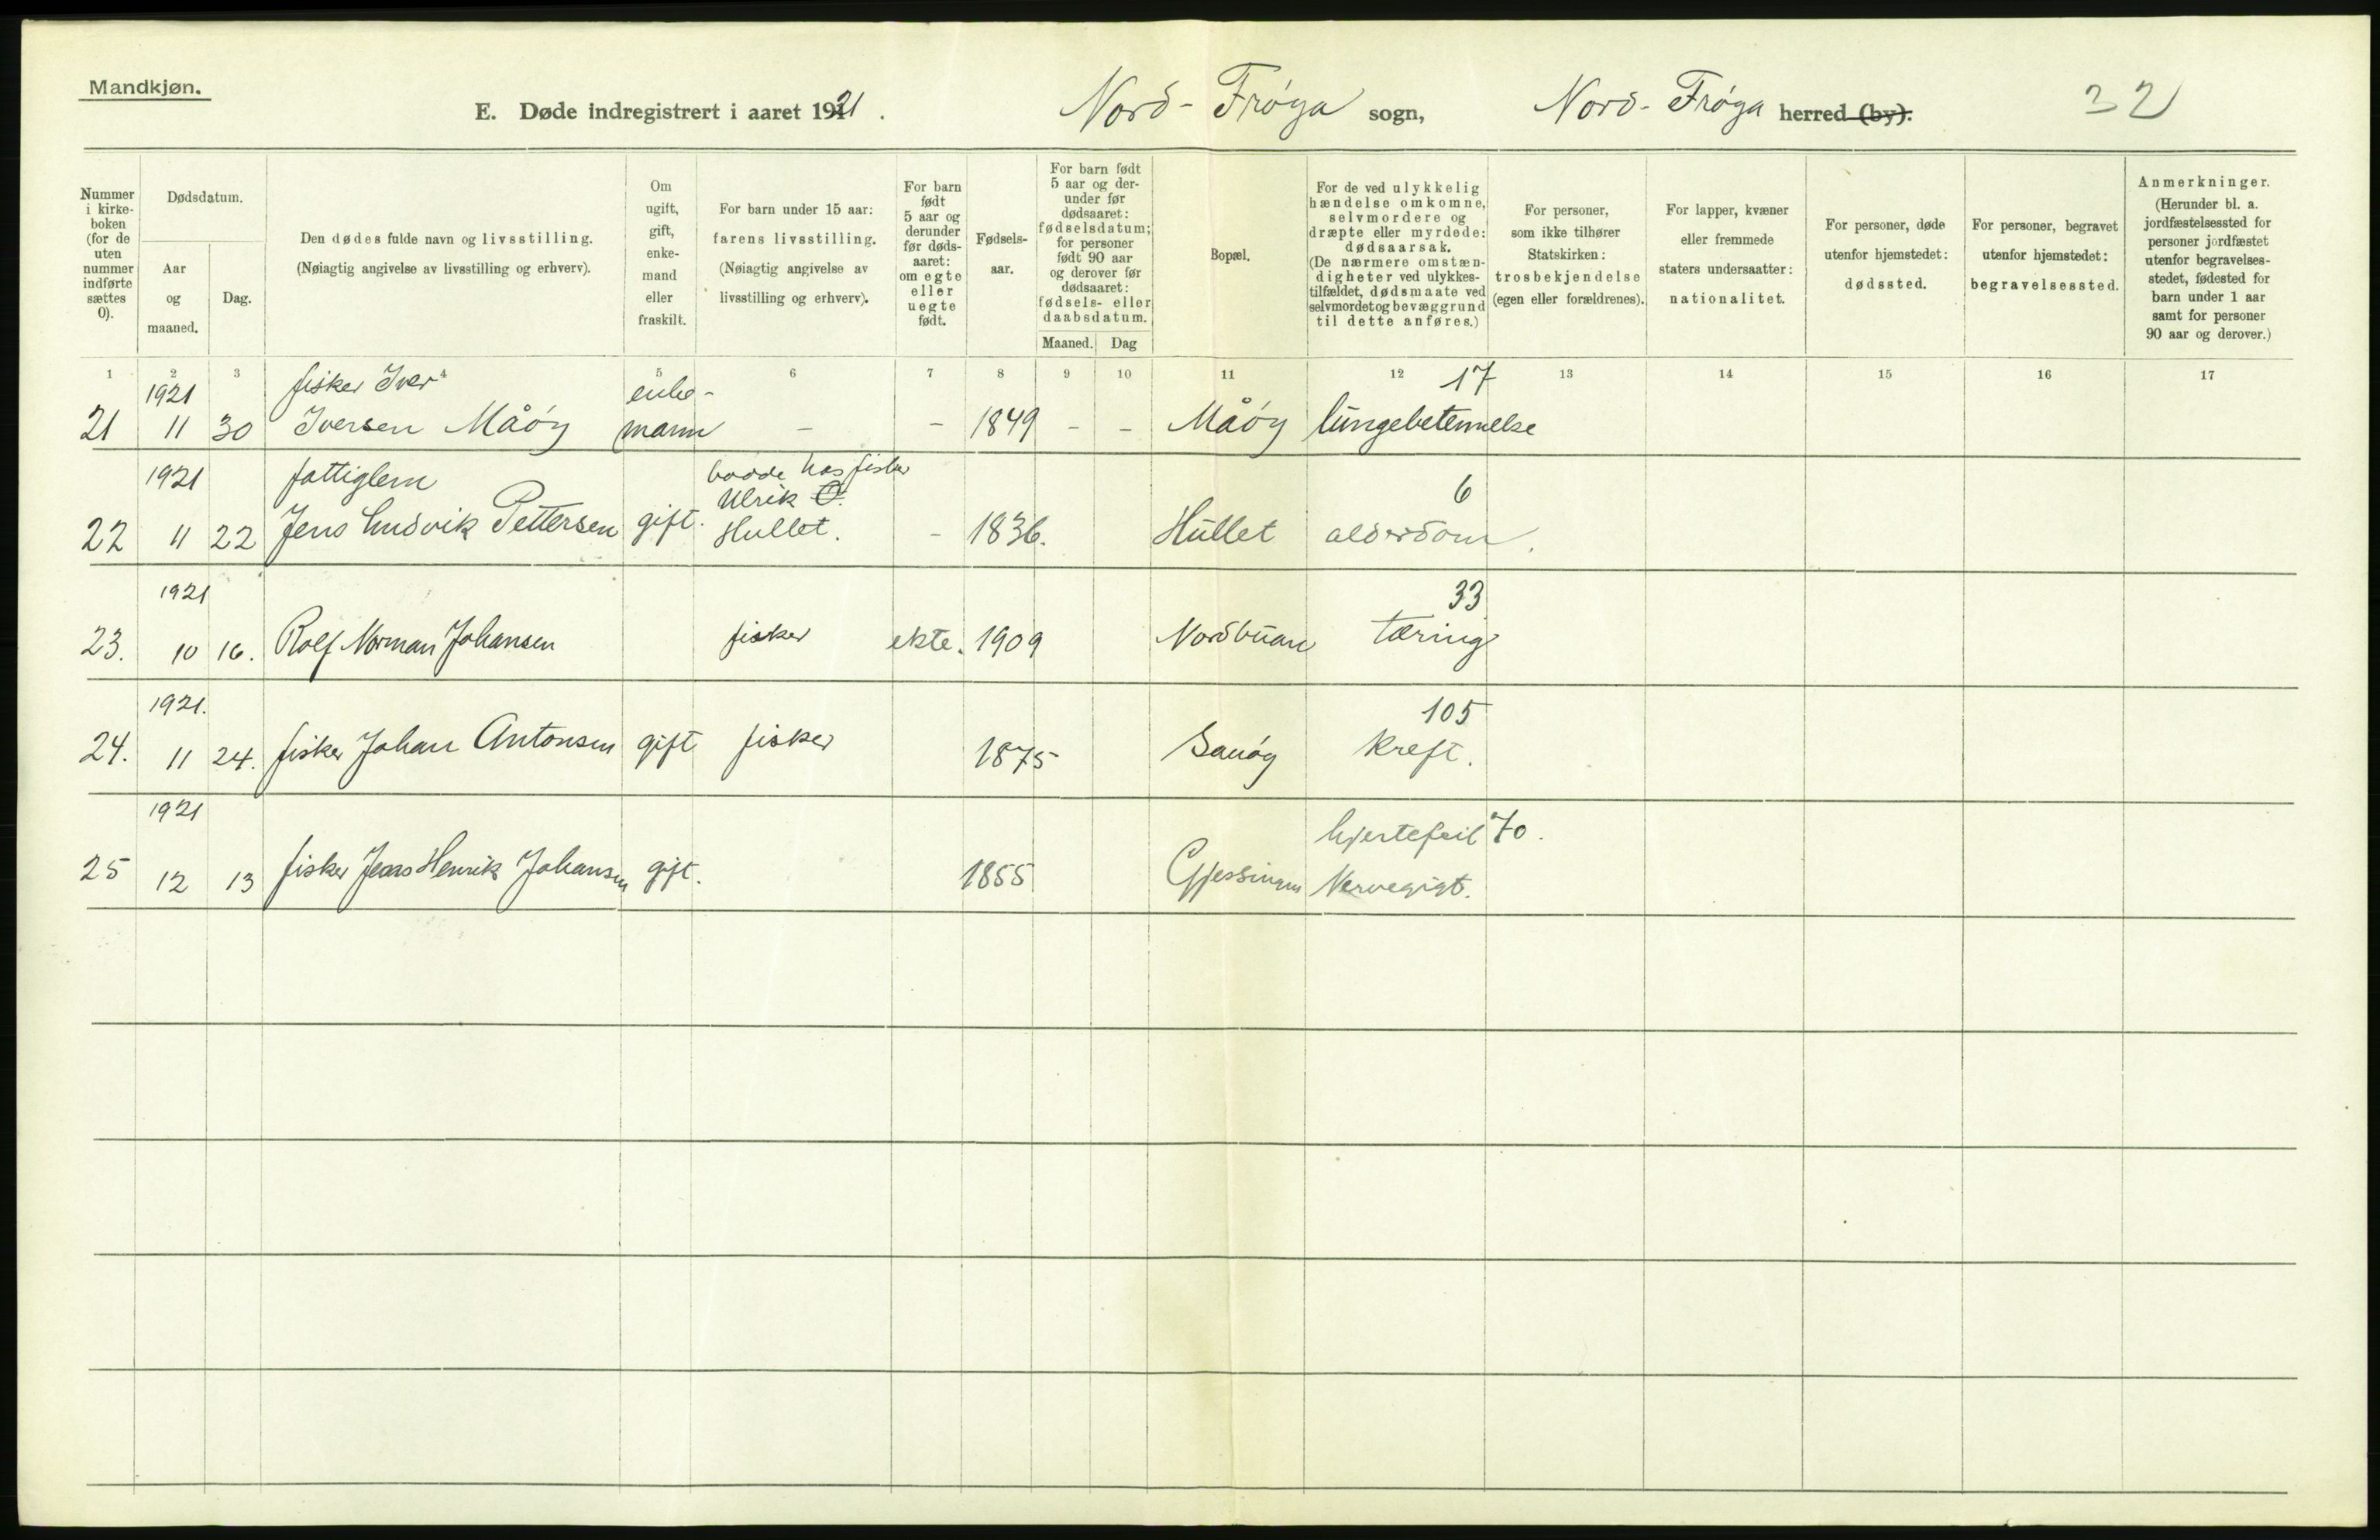 Mandkjøn.
E. Døde indregistrert i aaret 1921.
Nord-Frøya sogn,
Nord-Frøya herred (by).
32
Nummer i kirke-boken (for de uten nummer indførte sættes 0).
Dødsdatum.
Aar og maaned.
Dag.
Den dødes fulde navn og livsstilling.
(Nøiagtig angivelse av livsstilling og erhverv).
Om ugift, gift, enke-mand eller fraskilt.
For barn under 15 aar: farens livsstilling. (Nøiagtig angivelse av livsstilling og erhverv).
For barn født 5 aar og derunder før døds-aaret: om egte eller uegte født.
Fødsels-aar.
For barn født 5 aar og der-under før dødsaaret: fødselsdatum; for personer født 90 aar og derover før dødsaaret: fødsels- eller daabsdatum.
Maaned. Dag
Bopæl.
For de ved ulykkelig hændelse omkomne, selvmordere og dræpte eller myrdede: dødsaarsak. (De nærmere omstæn-digheter ved ulykkes-tilfældet, dødsmaate ved selvmordet og bevæggrund til dette anføres.)
For personer, som ikke tilhører Statskirken: trosbekjendelse (egen eller forældrenes).
For lapper, kvæner eller fremmede staters undersaatter: nationalitet.
For personer, døde utenfor hjemstedet: dødssted.
For personer, begravet utenfor hjemstedet: begravelsessted.
Anmerkninger. (Herunder bl. a. jordfæstelsessted for personer jordfæstet utenfor begravelses-stedet, fødested for barn under 1 aar samt for personer 90 aar og derover.)
1 2 3 4 5 6 7 8 9 10 11 12 13 14 15 16 17
1921 fisker Iver enke- 17
21 11 30 Iversen Måøy mann - - 1849 - - Måøy lungebetennelse
1921 fattiglem bodde hos fisker
Ulrik 6
22 11 22 Jens Ludvik Pettersen gift. Hullet. - 1836. Hullet alderdom.
1921 33
23. 10 16. Rolf Norman Johansen fisker ekte. 1909 Nordbuan Tæring
1921. 105
24. 11 24. fisker Johan Antonsen gift fisker 1875 Sauøy Kreft.
1921 hjertefeil 70.
25 12 13 fisker Jens Henrik Johansen gift. 1855 Gjessingen Nervegigt.